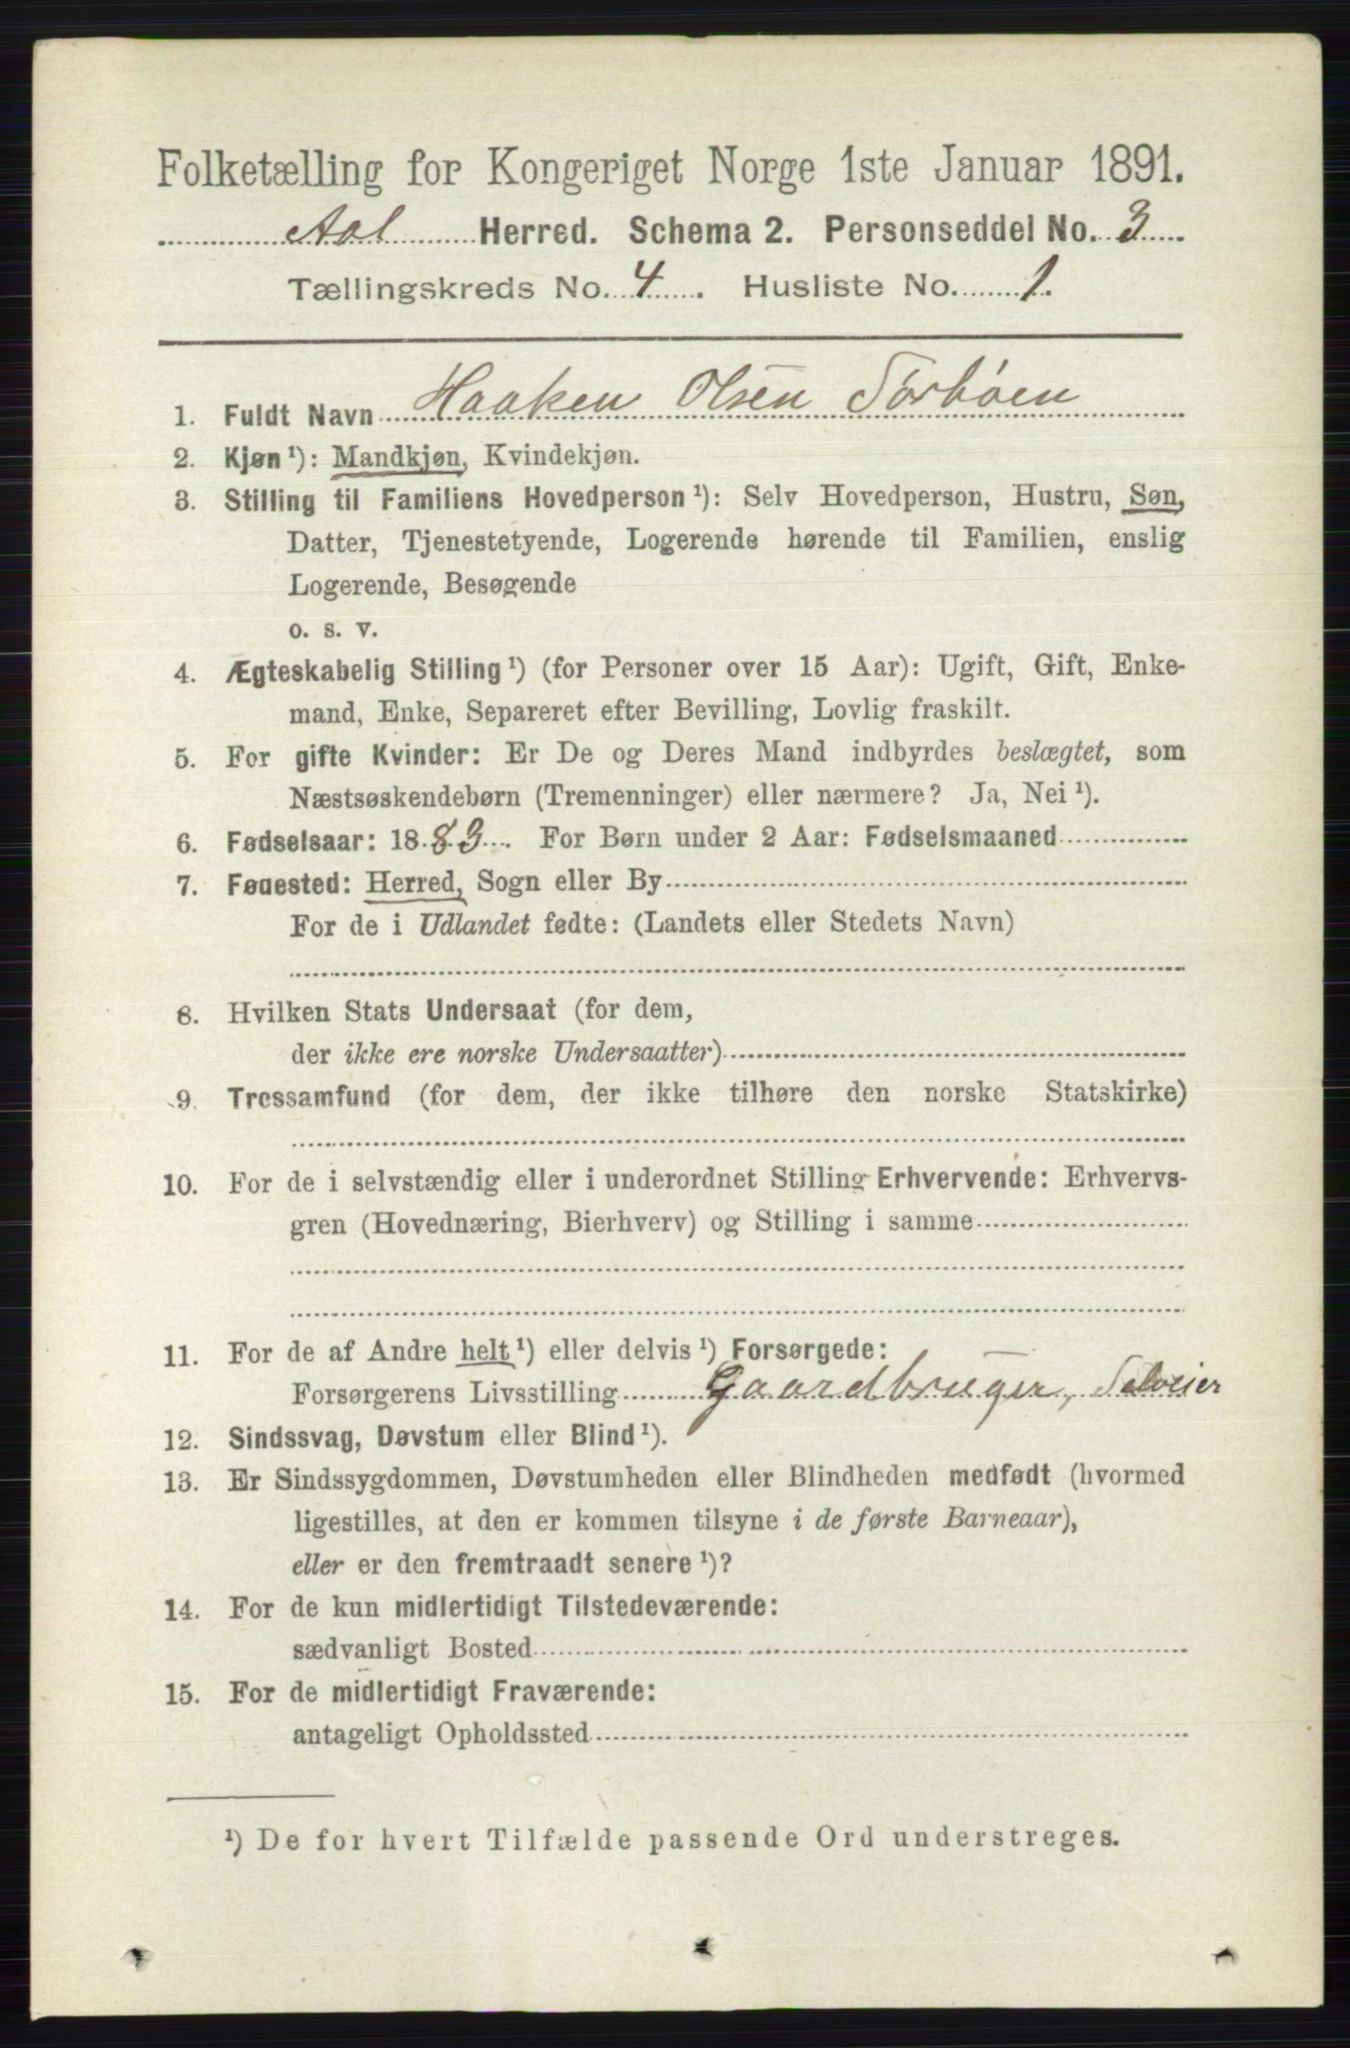 Folketælling for Kongeriget Norge 1ste Januar 1891.
Aal Herred. Schema 2. Personseddel No. 3
Tællingskreds No. 4. Husliste No. 1.
1. Fuldt Navn Haaken Olsen Sørbøen
2. Kjøn ¹): Mandkjøn, Kvindekjøn.
3. Stilling til Familiens Hovedperson ¹): Selv Hovedperson, Hustru, Søn,
Datter, Tjenestetyende, Logerende hørende til Familien, enslig
Logerende, Besøgende
o. s. v.
4. Ægteskabelig Stilling ¹) (for Personer over 15 Aar): Ugift, Gift, Enke-
mand, Enke, Separeret efter Bevilling, Lovlig fraskilt.
5. For gifte Kvinder: Er De og Deres Mand indbyrdes beslægtet, som
Næstsøskendebørn (Tremenninger) eller nærmere? Ja, Nei ¹).
6. Fødselsaar: 1883. For Børn under 2 Aar: Fødselsmaaned
7. Fødested: Herred, Sogn eller By
For de i Udlandet fødte: (Landets eller Stedets Navn)
8. Hvilken Stats Undersaat (for dem,
der ikke ere norske Undersaatter)
9. Trossamfund (for dem, der ikke tilhøre den norske Statskirke)
10. For de i selvstændig eller i underordnet Stilling Erhvervende: Erhvervs-
gren (Hovednæring, Bierhverv) og Stilling i samme
11. For de af Andre helt ¹) eller delvis ¹) Forsørgede:
Forsørgerens Livsstilling Gaardbruger, Selveier
12. Sindssvag, Døvstum eller Blind ¹).
13. Er Sindssygdommen, Døvstumheden eller Blindheden medfødt (hvormed
ligestilles, at den er kommen tilsyne i de første Barneaar),
eller er den fremtraadt senere ¹)?
14. For de kun midlertidigt Tilstedeværende:
sædvanligt Bosted
15. For de midlertidigt Fraværende:
antageligt Opholdssted
¹) De for hvert Tilfælde passende Ord understreges.